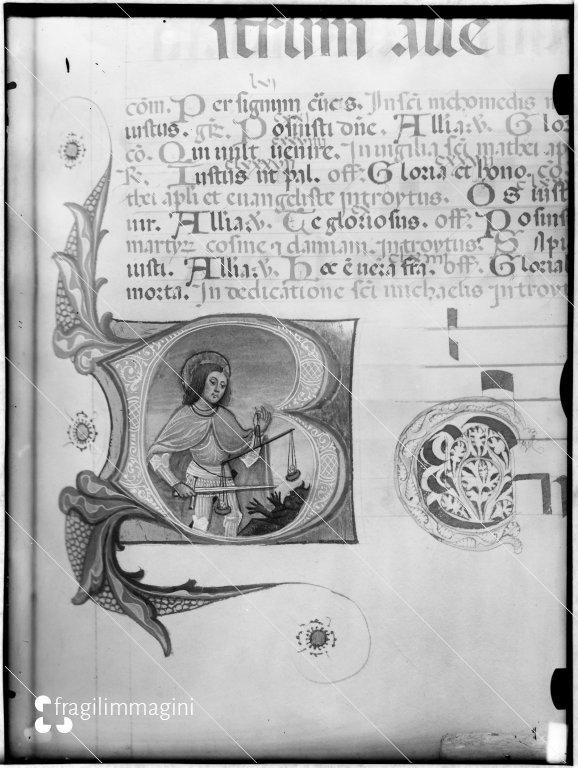 itrium aue
lvj
cōm. Per signum cūcs. In sci nichomedis m
iustus. gr̄. Posuisti dn̄e. Allīa. v̄. Glo
cō. Qui uult uenire. In uigilia sci mathei ap
R. Iustus ut pal. off. Gloria et hono. cō.
thei apli et euangeliste introytus. Os iust
uir. Allīa. v̄. Te gloriosus. off. Posuis
martyrꝫ cosme ⁊ damiani. Introytus. Sapi
iusti. Allīa. v̄. Hec ē uera fra. off. Gloria
morta. In dedicatione sci michaelis introyt
B
C
fragilimmagini